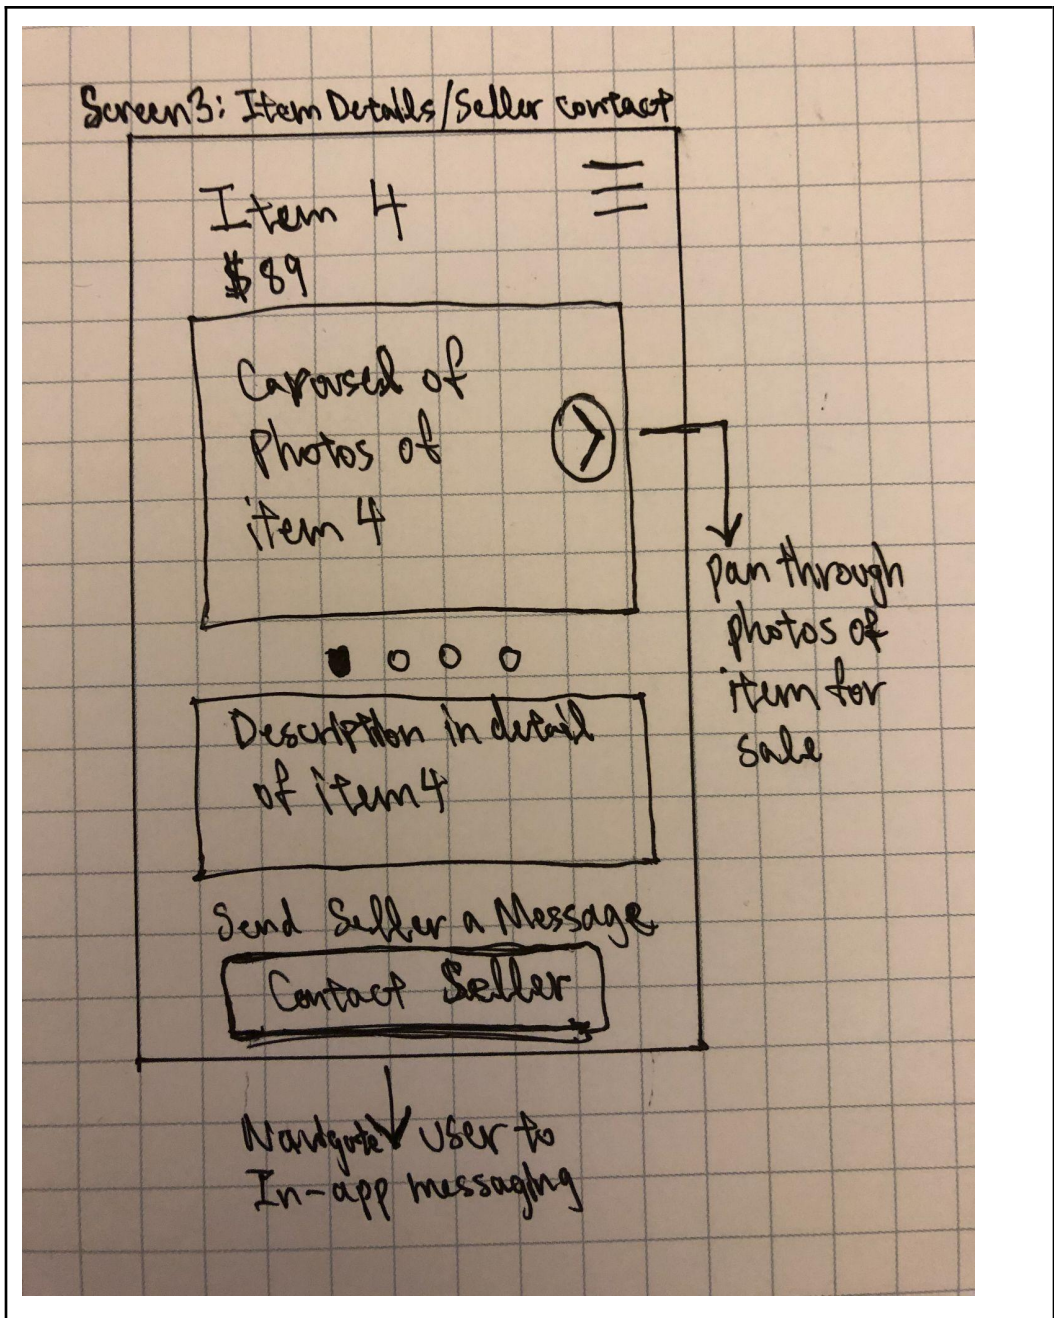 Screen3: Item Details/Seller contact
Item 4
$89
Carousel of
Photos of
item 4
pan through
photos of
item for
sale
Description in detail
of item4
Send Seller a Message
Contact Seller
Navigate user to
In-app messaging